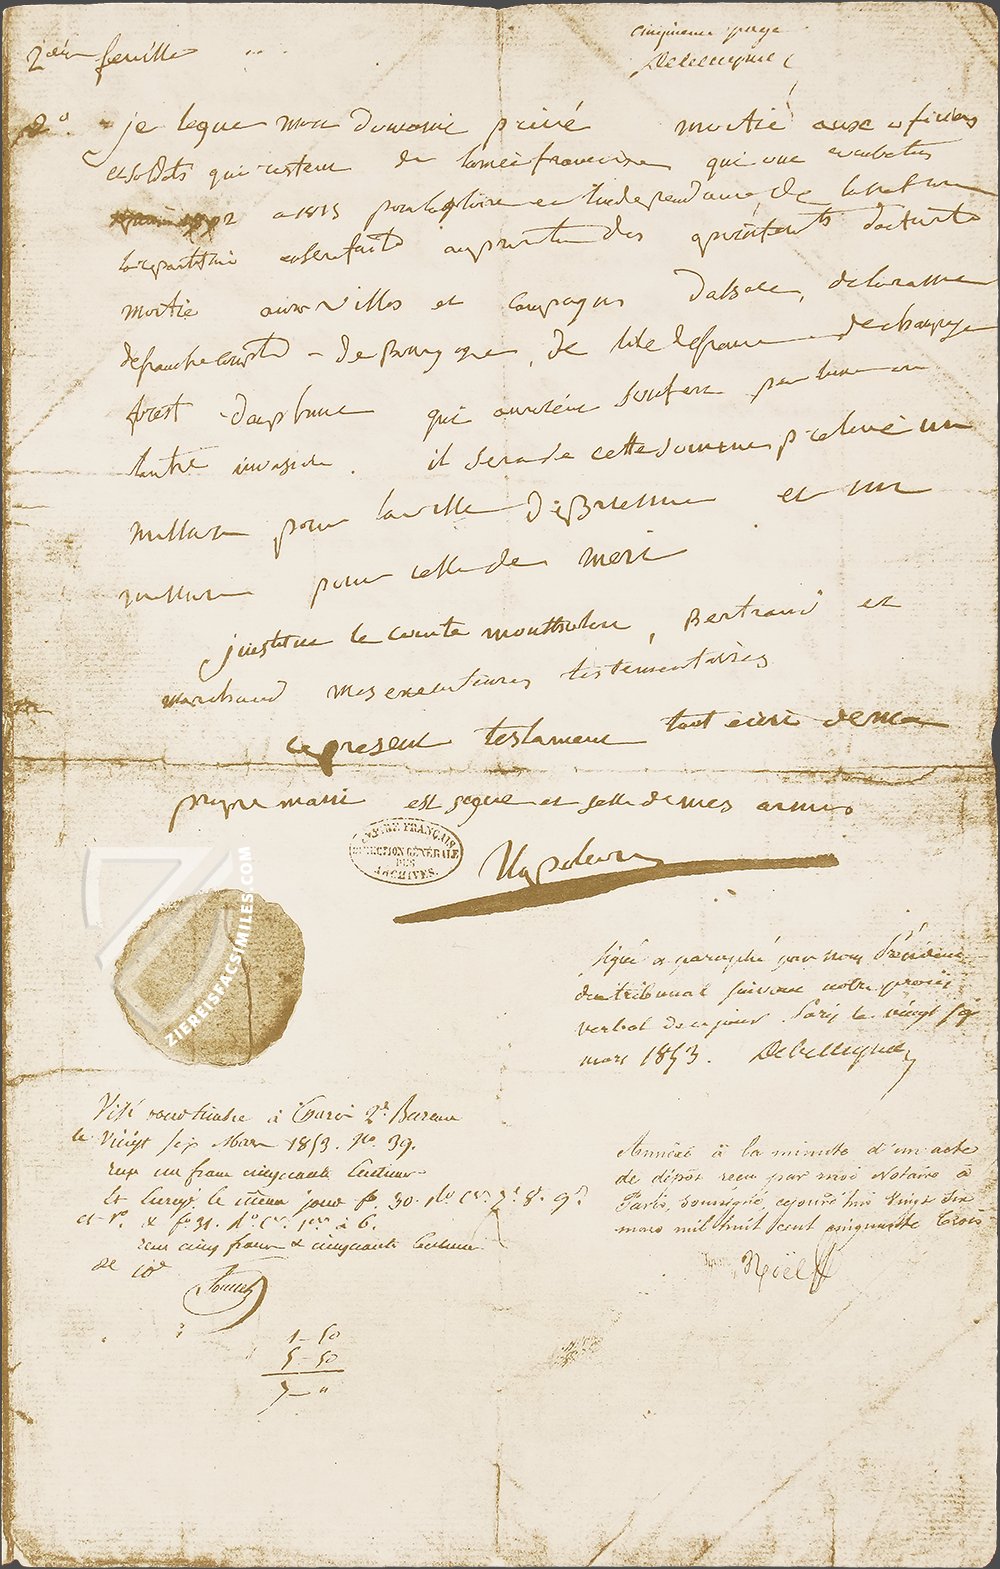 2eme feuille
cinquieme page
Debelleyme
2o. je legue mon domaine privé moitié aux oficiers
et soldats qui restent de larmée francaise qui ont combatus
1792 a 1815 pour la gloire et lindependance de la nation
la repartition en sera faite au prorata des apointements dactivité
moitié aux villes et campagnes dalsace, de loraine
de franche comté - de Bourgogne, de lile de france de champagne
forest - dauphiné qui auroient soufert par lune ou
lautre invasion. il sera de cette somme prelevé un
million pour la ville de Brienne et un
million pour celle de meri
jinstitue le comte montholon, Bertrand et
marchand mes executeurs testementaires
ce present testament tout ecrit de ma
propre main est signé et sellé de mes armes
EMPIRE FRANÇAIS
DIRECTION GÉNÉRALE
DES
ARCHIVES.
Napoleon
ZIEREISFACSIMILES.COM
Signé et paraphé par nous Président
du tribunal suivant notre procès
verbal de ce jour. Paris le vingt six
mars 1853. Debelleyme
Visé pour timbre à Paris 2e. Bureau
le Vingt six Mars 1853. No. 39.
reçu un franc cinquante centimes
et Enregé. le même jour fo. 30. Ro. Ces. 7. 8. 9.
et Vo. & fo 31. Ro. Ces. 1er. à 6.
reçu cinq francs & cinquante Centimes
de 10e
Annexé à la minute d'un acte
de dépôt reçu par moi Notaire à
Paris, soussigné, cejourd'hui Vingt Six
mars mil huit cent cinquante trois
Noël
1 - 50
5 - 50
7 - "